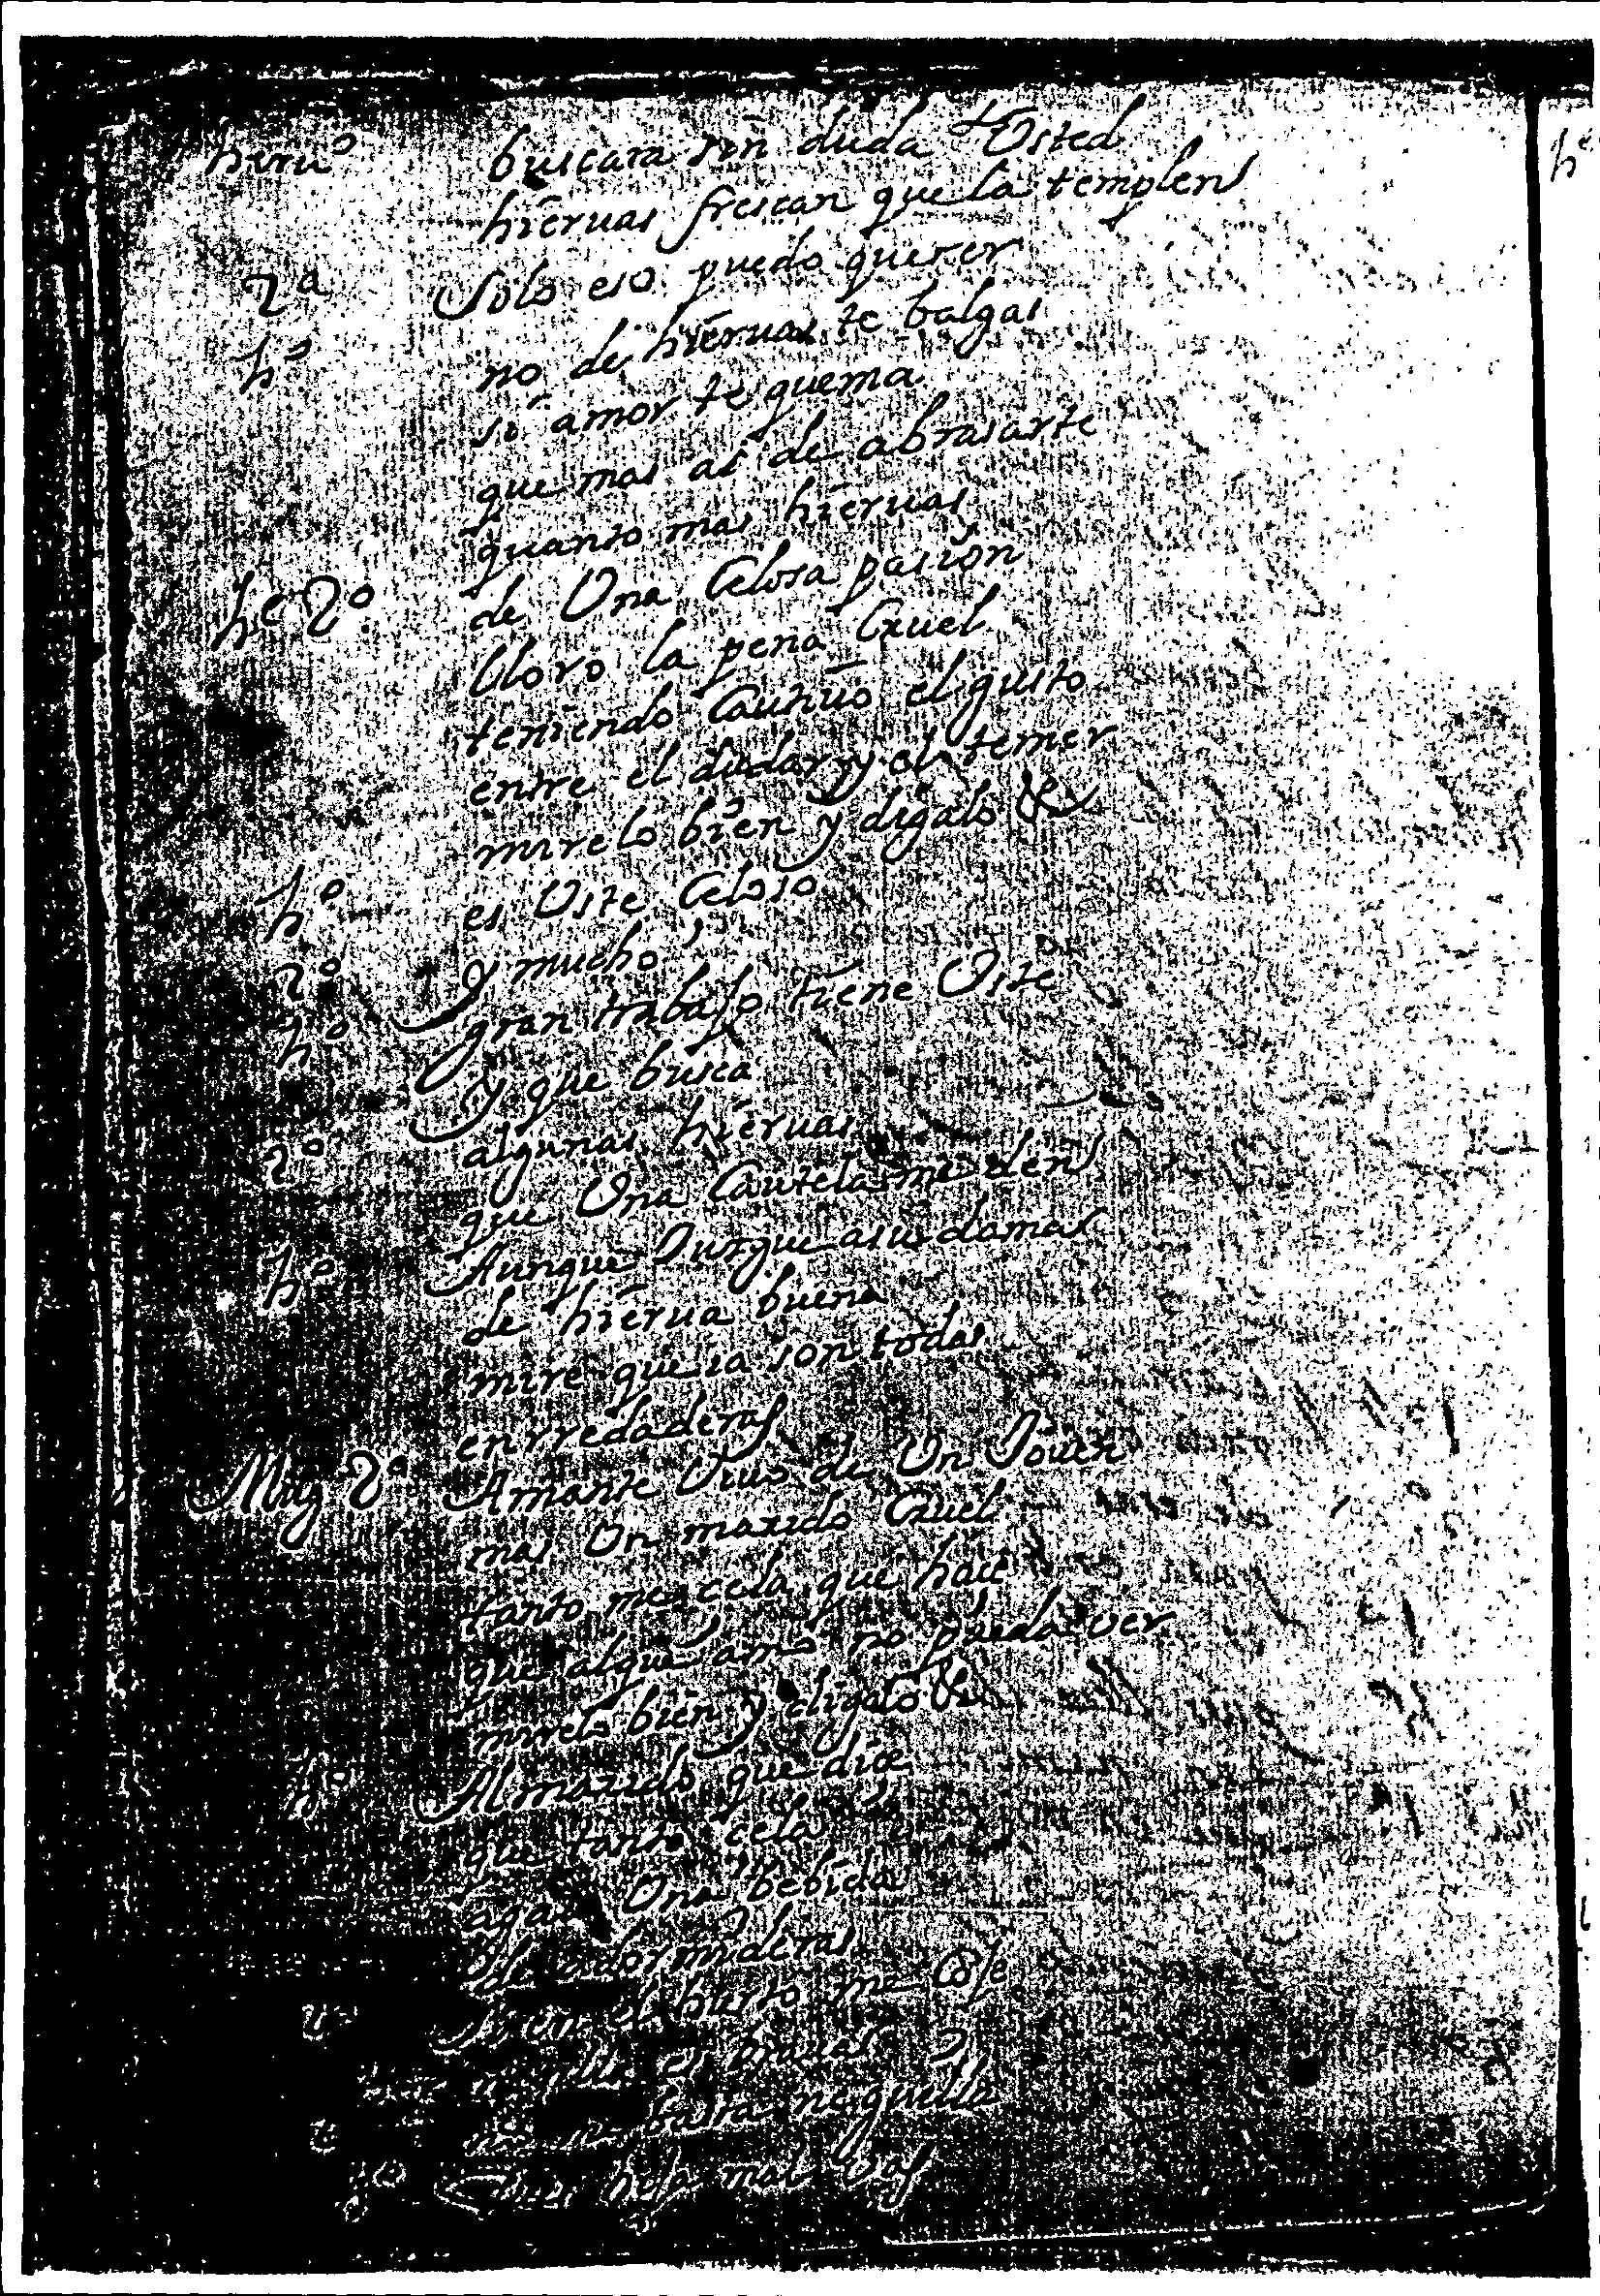 heru^o buscara sin duda Usted
hieruas frescan que la templen
2^a Solo eso puedo querer
h^o no de hieruas te balgas
si amor te quema
que mas as de abrasarte
quanto mas hieruas
h^e 2^o de Una Celosa pasion
lloro la pena Cruel
teniendo Cautiuo el gusto
entre el dudar y el temer
mirelo bien y digalo &
h^o es Uste Celoso
2^o y mucho
h^o gran trabajo tiene Uste
y que busca
2^o algunas hieruas
que Una Cautela me den
h^o Aunque Purgue a sus damas
de hierua buena
mire que ia son todas
enrredaderas
Mug 2^a Amante Uiuo de Un Jouen
mas Un marido Cruel
tanto me zela que hace
que al que amo no pueda uer
mirelo bien y digalo &
h^o Al marido que dice
que tanto cela
agale Una bebida
de adormideras
2^a Si en el huerto me Coje
basta
mas